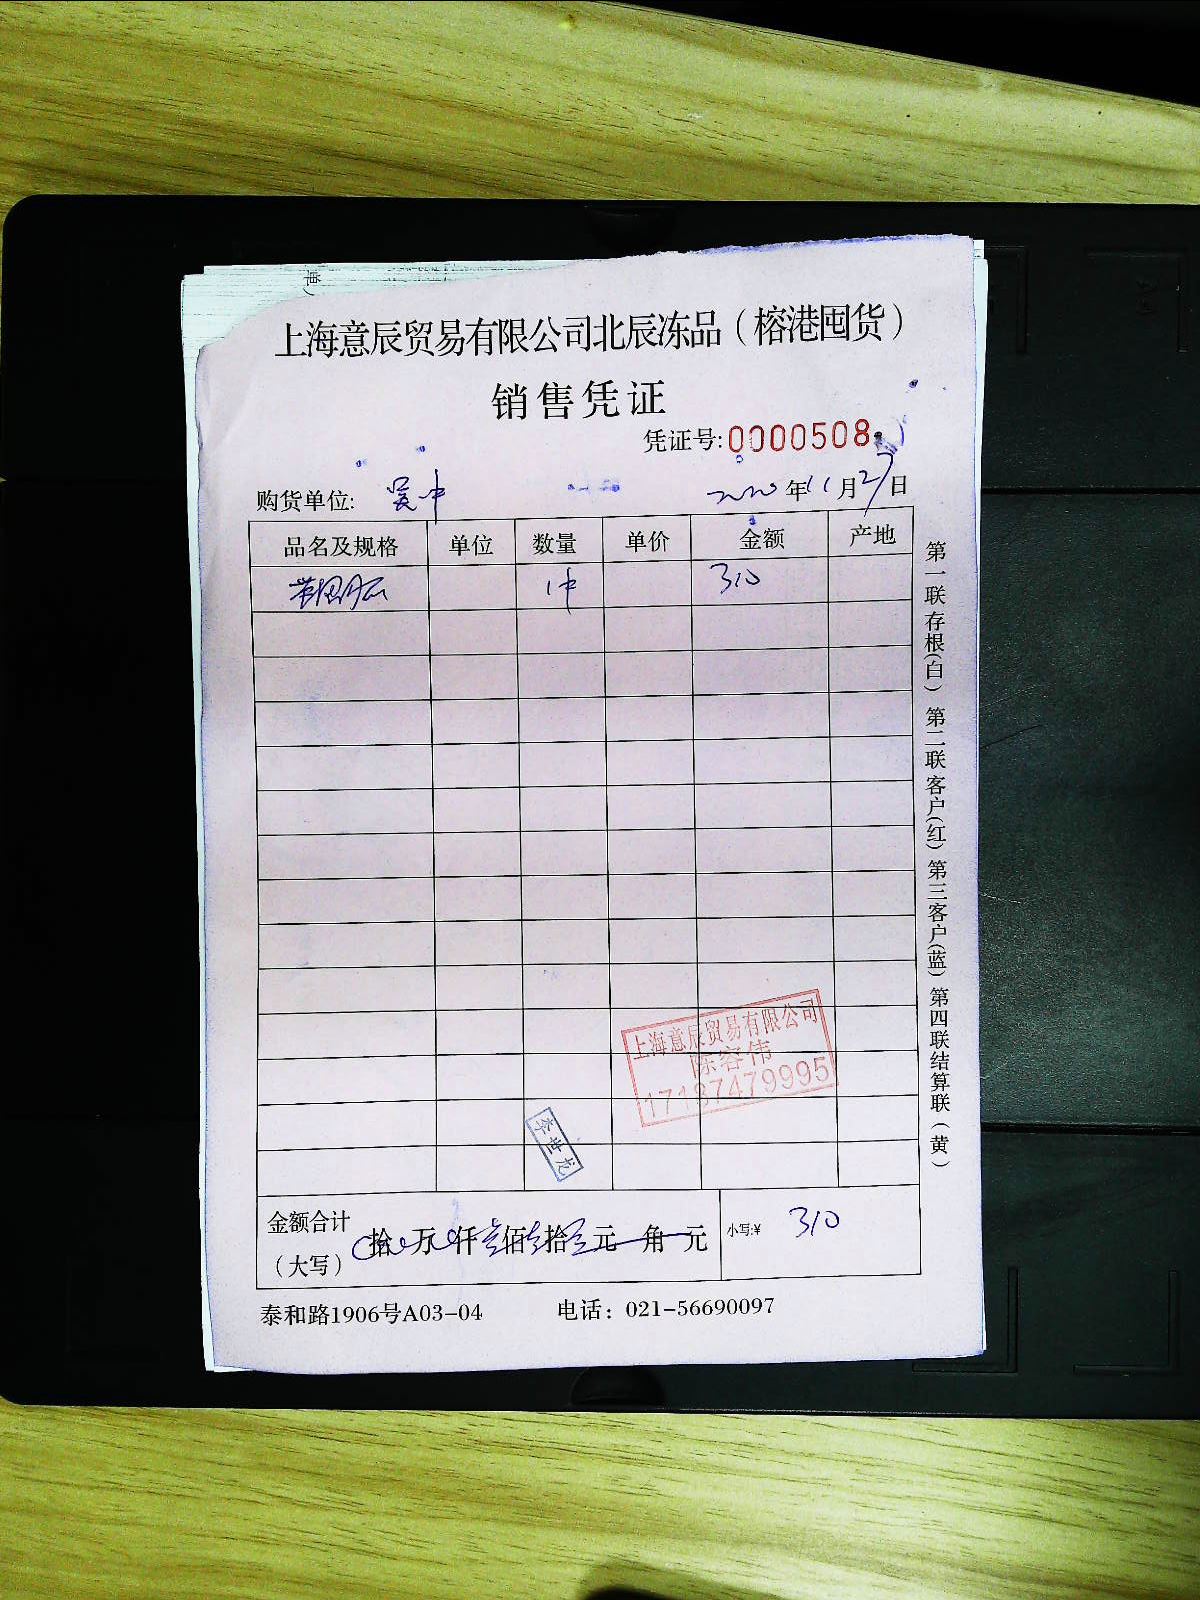 单）
上海意辰贸易有限公司北辰冻品（榕港囤货）
销售凭证
凭证号:0000508
购货单位: 吴中 2020年11月27日
品名及规格 单位 数量 单价 金额 产地
1件 310
上海意辰贸易有限公司
陈容伟
17187479995
李世龙
金额合计（大写） 拾 万 仟 佰 拾 元 角 元 小写:¥ 310
泰和路1906号A03-04 电话：021-56690097
第一联存根(白) 第二联客户(红) 第三客户(蓝) 第四联结算联（黄）